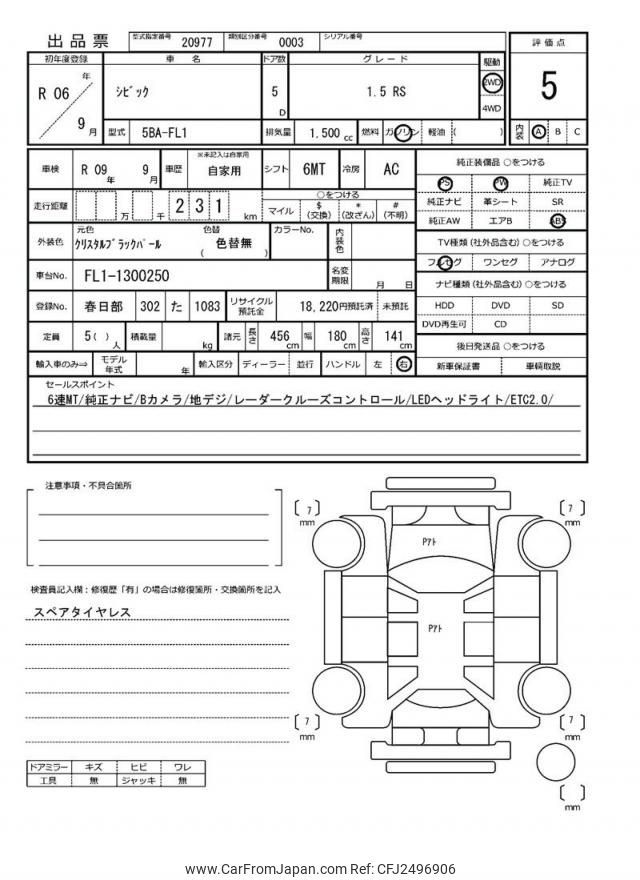 出品票 型式指定番号 20977 類別区分番号 0003 シリアル番号
初年度登録 車 名 ドア数 グレード 駆動 評価点
R 06 年 9 月 シビック 5 D 1.5 RS 2WD 4WD 5
型式 5BA-FL1 排気量 1,500 cc 燃料 ガソリン 軽油 ( ) 内装 A B C
車検 R 09 年 9 月 車歴 ※未記入は自家用 自家用 シフト 6MT 冷房 AC
走行距離 万 千 2 3 1 km ○をつける マイル $ (交換) * (改ざん) # (不明)
外装色 元色 クリスタルブラックパール 色替 ( 色替無 ) カラーNo. 内装色
車台No. FL1-1300250 名変期限 月 日
登録No. 春日部 302 た 1083 リサイクル預託金 18,220円預託済 未預託
定員 5 ( ) 人 積載量 kg 諸元 長さ 456 cm 幅 180 cm 高さ 141 cm
輸入車のみ⇒ モデル年式 年 輸入区分 ディーラー 並行 ハンドル 左 右
純正装備品 ○をつける
PS PW 純正TV
純正ナビ 革シート SR
純正AW エアB ABS
TV種類 (社外品含む) ○をつける
フルセグ ワンセグ アナログ
ナビ種類 (社外品含む) ○をつける
HDD DVD SD
DVD再生可 CD
後日発送品 ○をつける
新車保証書 車輌取説
セールスポイント
6速MT/純正ナビ/Bカメラ/地デジ/レーダークルーズコントロール/LEDヘッドライト/ETC2.0/
注意事項・不具合箇所
検査員記入欄：修復歴「有」の場合は修復箇所・交換箇所を記入
スペアタイヤレス
ドアミラー キズ ヒビ ワレ
工具 無 ジャッキ 無
〔 7 〕 mm
〔 7 〕 mm
Pアト
Pアト
〔 7 〕 mm
〔 7 〕 mm
〔 〕 mm
www.CarFromJapan.com Ref: CFJ2496906